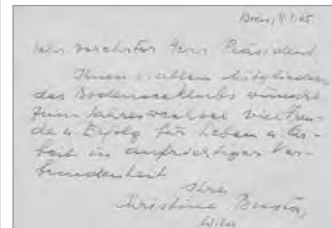 sehr verehrter Herr Präsident
Ihnen u. allen Mitgliedern
des Bodenseeklubs wünscht
zum Jahreswechsel viel Freu-
de u. Erfolg für Leben u. Ar-
beit in aufrichtiger Ver-
bundenheit
Ihre
Christine
Wien